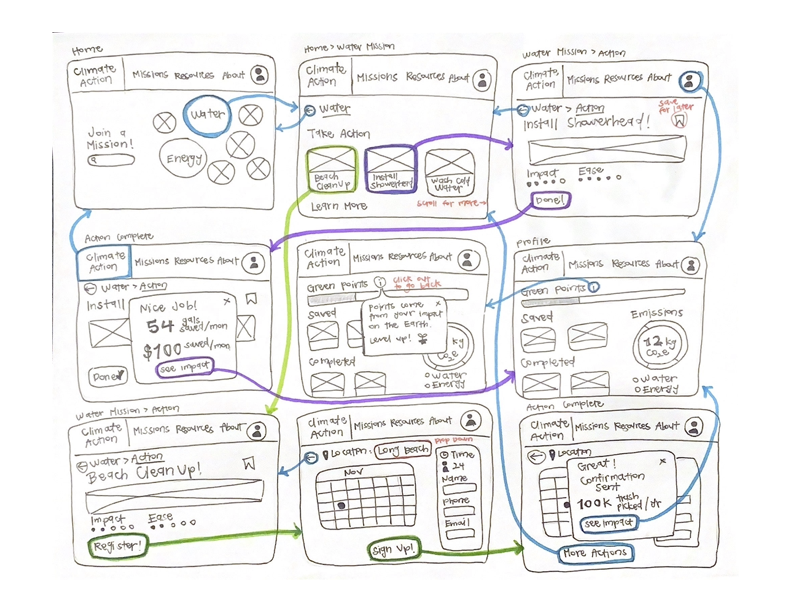 Home
Climate Action
Missions Resources About
Join a
Mission!
Water
Energy
Home > Water Mission
Climate Action
Missions Resources About
Water
Take Action
Beach CleanUp
Install Showerhead
Wash Cold Water
Learn More
Scroll for more →
Water Mission > Action
Climate Action
Missions Resources About
Water > Action
Save for later
Install Showerhead!
Impact
Ease
Done!
Action Complete
Climate Action
Missions Resources About
Water > Action
Install
Nice Job! x
54 gals saved/mon
$100 saved/mon
See impact
Done
Climate Action
Missions Resources About
Green Points i
Click out to go back
Saved
Points come x
from your impact
on the Earth.
Level up!
kg
CO2e
Completed
Water
Energy
Profile
Climate Action
Missions Resources About
Green Points i
Saved
Emissions
12 kg
CO2e
Completed
Water
Energy
Water Mission > Action
Climate Action
Missions Resources About
Water > Action
Beach CleanUp!
Impact
Ease
Register!
Climate Action
Missions Resources About
Location: Long Beach
Drop Down
Nov
Time
24
Name
Phone
Email
Sign Up!
Action Complete
Climate Action
Missions Resources About
Location
Great! x
Confirmation
Sent
100k trash picked/yr
See impact
More Actions